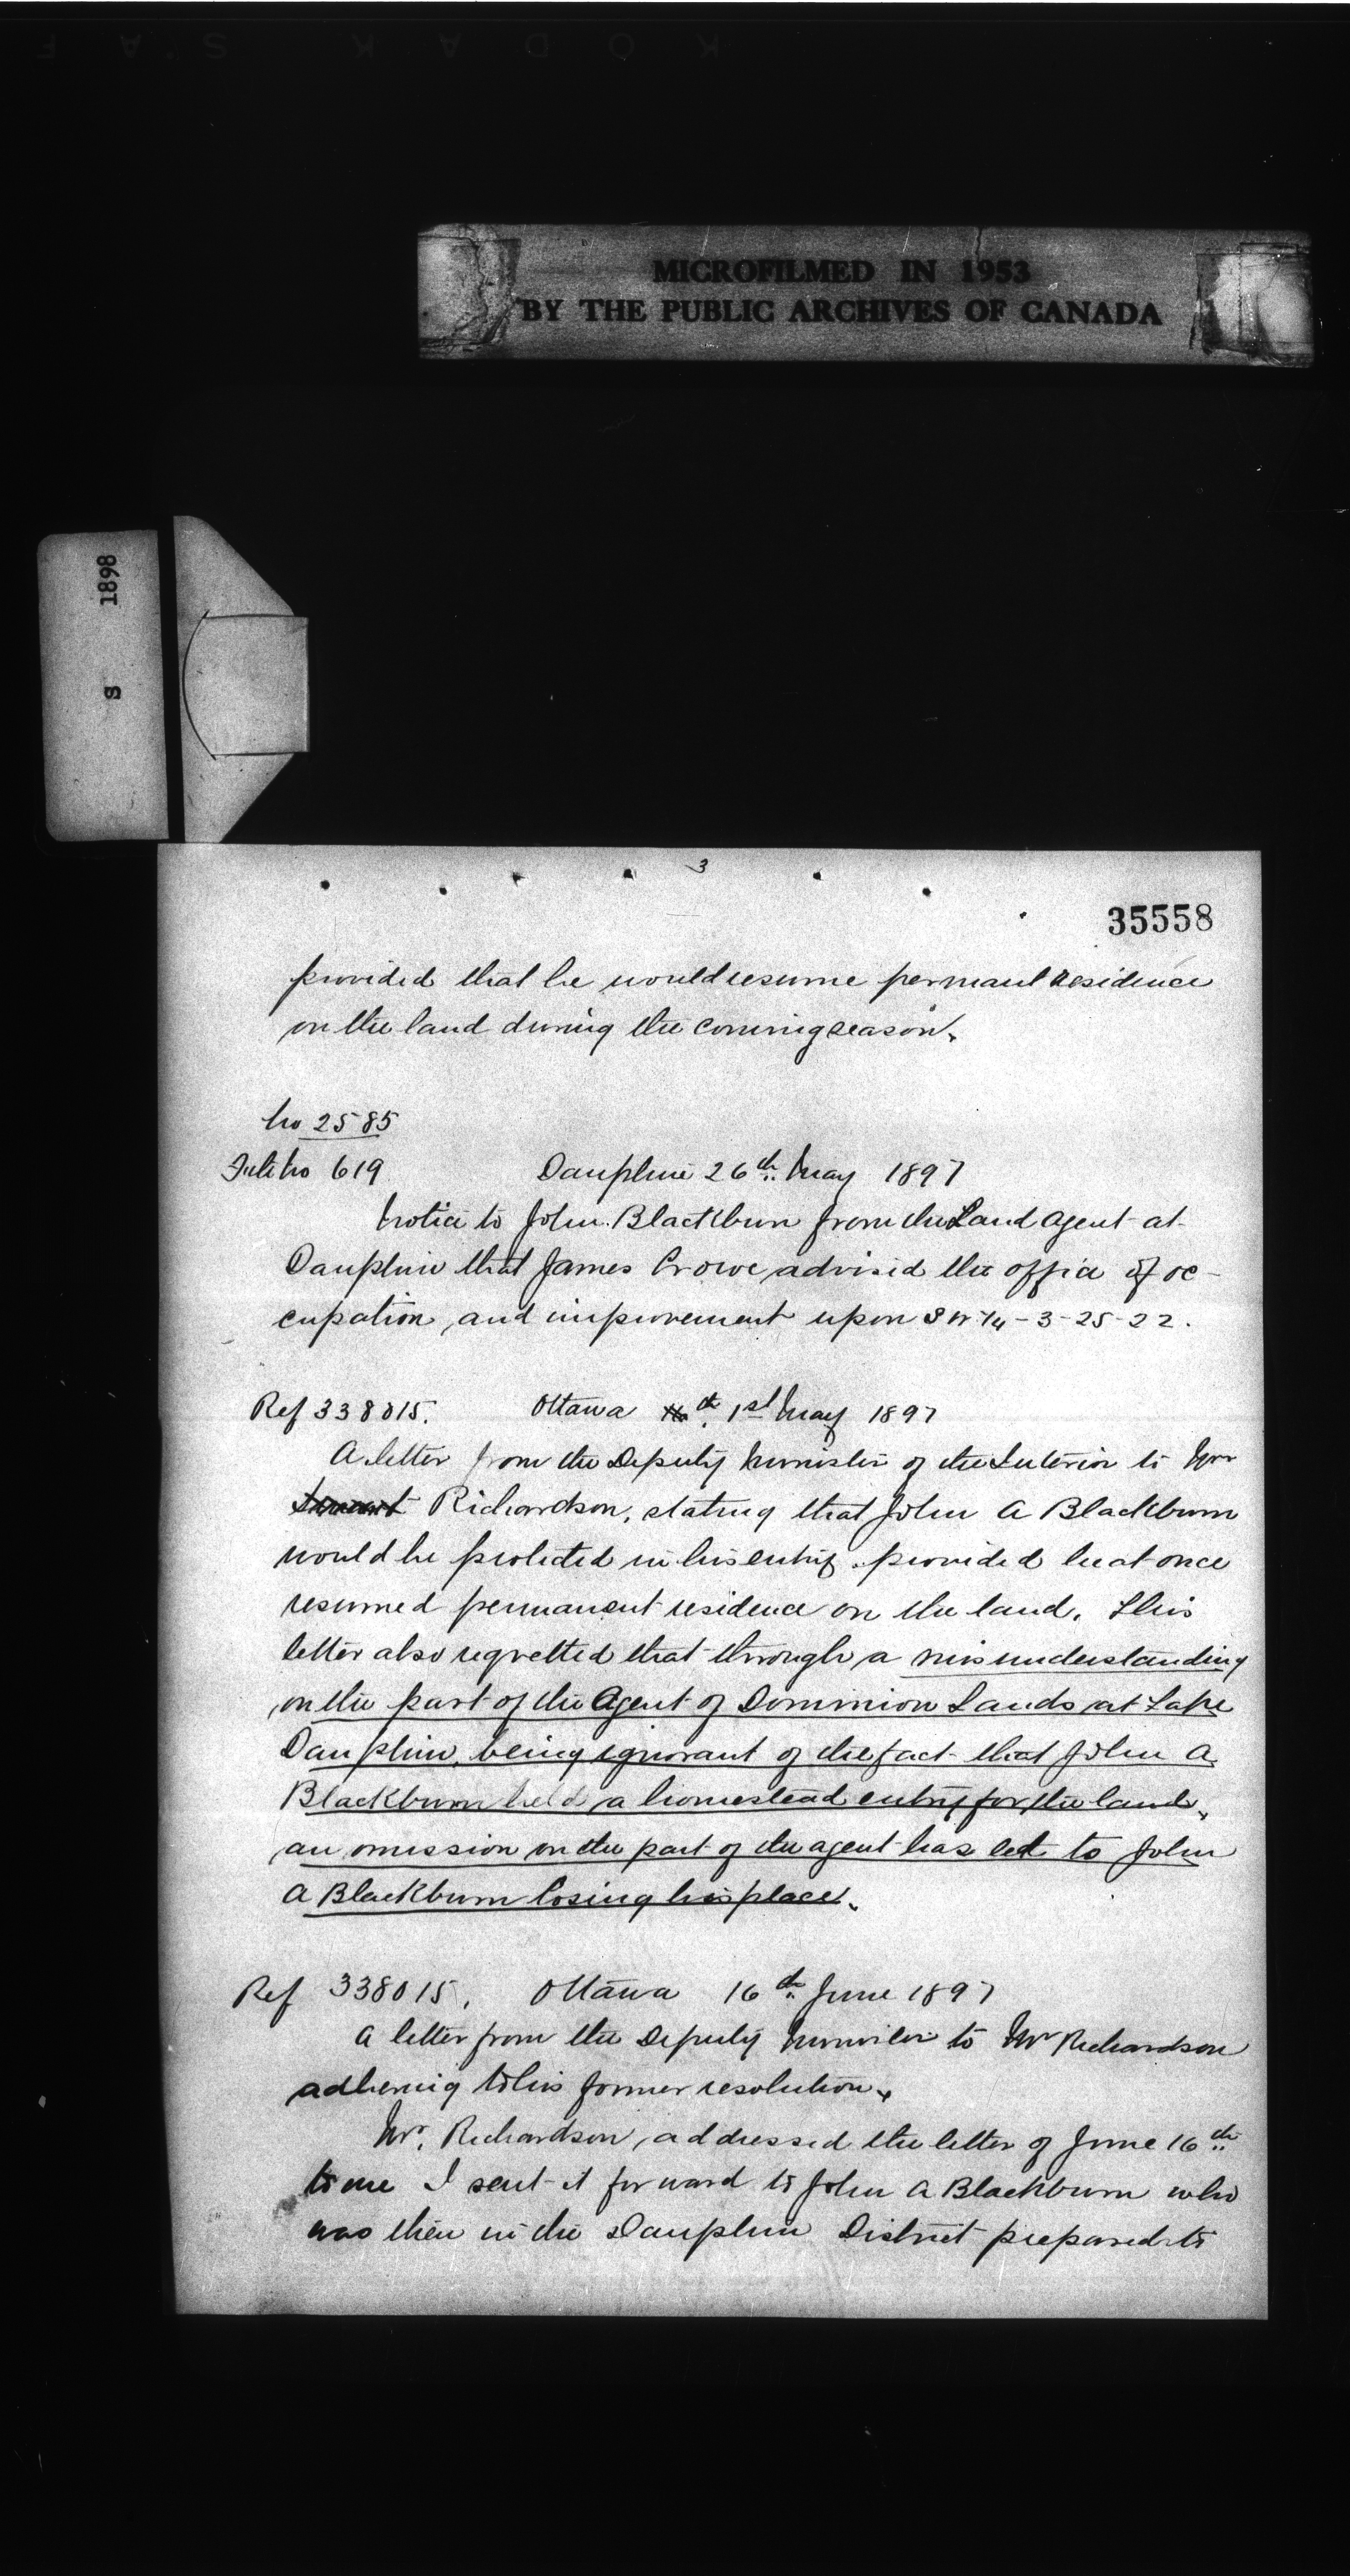 KODAK SAF
MICROFILMED IN 1953
BY THE PUBLIC ARCHIVES OF CANADA
S 1898
3
35558
provided that he would resume permant residence
on the land during the coming season.
No 2585
File No 619 Dauphin 26th May 1897
Notice to John Blackburn from the Land Agent at
Dauphin that James Crowe advised the office of oc-
cupation, and improvement upon SW 1/4 - 3 - 25 - 22.
Ref 338015. Ottawa 1st May 1897
A letter from the Deputy Minister of the Interior to Mr
Richardson, stating that John A Blackburn
would be protected in his entry provided he at once
resumed permanent residence on the land. This
letter also regretted that through a misunderstanding
on the part of the Agent of Dominion Lands at Lake
Dauphin, being ignorant of the fact that John A
Blackburn held a homestead entry for the land,
an omission on the part of the agent has led to John
A Blackburn losing his place.
Ref 338015. Ottawa 16th June 1897
A letter from the Deputy Minister to Mr Richardson
adhering to his former resolution.
Mr. Richardson, addressed the letter of June 16th
to me I sent it forward to John A Blackburn who
was then in the Dauphin District prepared to